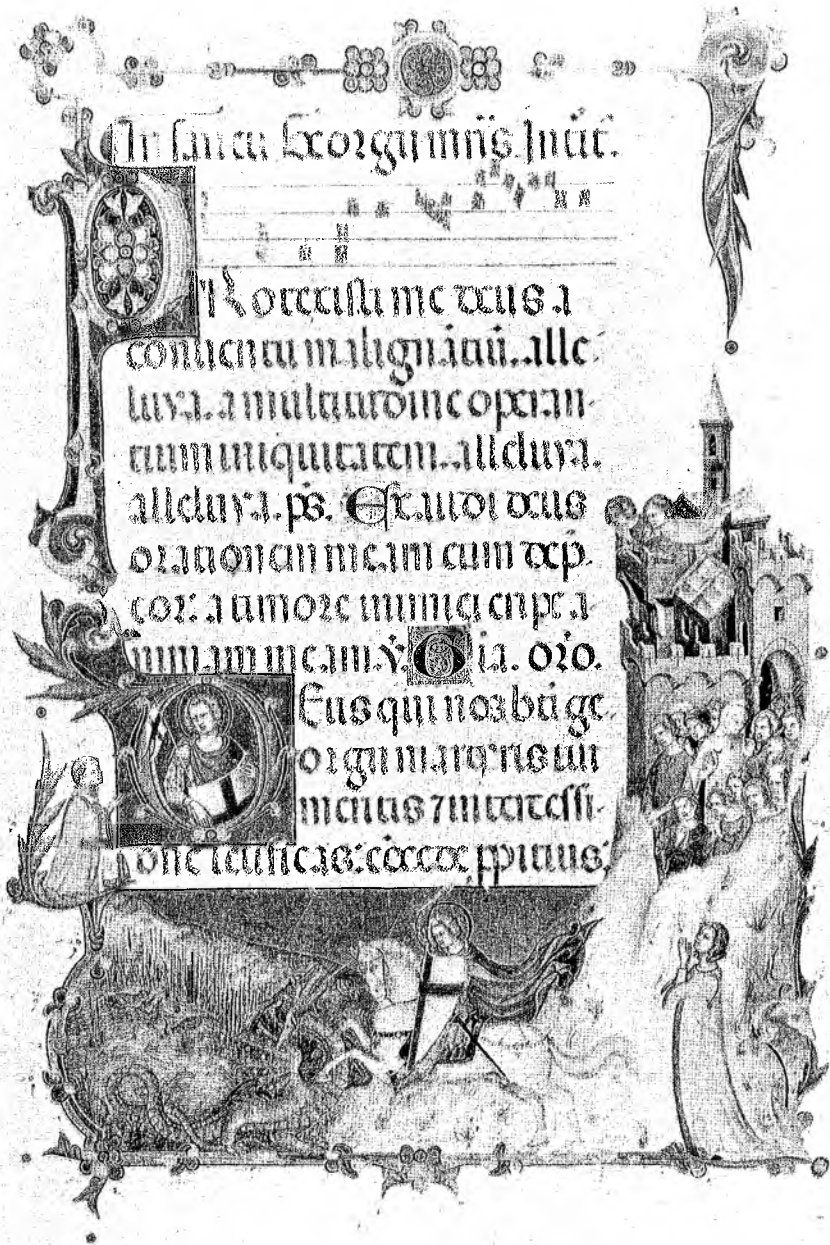 In sancti Georgii mris Intit.
PRotexisti me deus a
conuentu malignātiū. alle
luya. a multitudine operan-
tium iniquitatem. alleluya.
alleluya. ps. Exaudi deus
orationem meam cum dep
cor: a timore inimici eripe a
nimam meam. V. Gla. oro.
Deus qui nos bti ge
orgii martyris tui
meritis 7 intercessi-
one letificas: cōcede ppitius